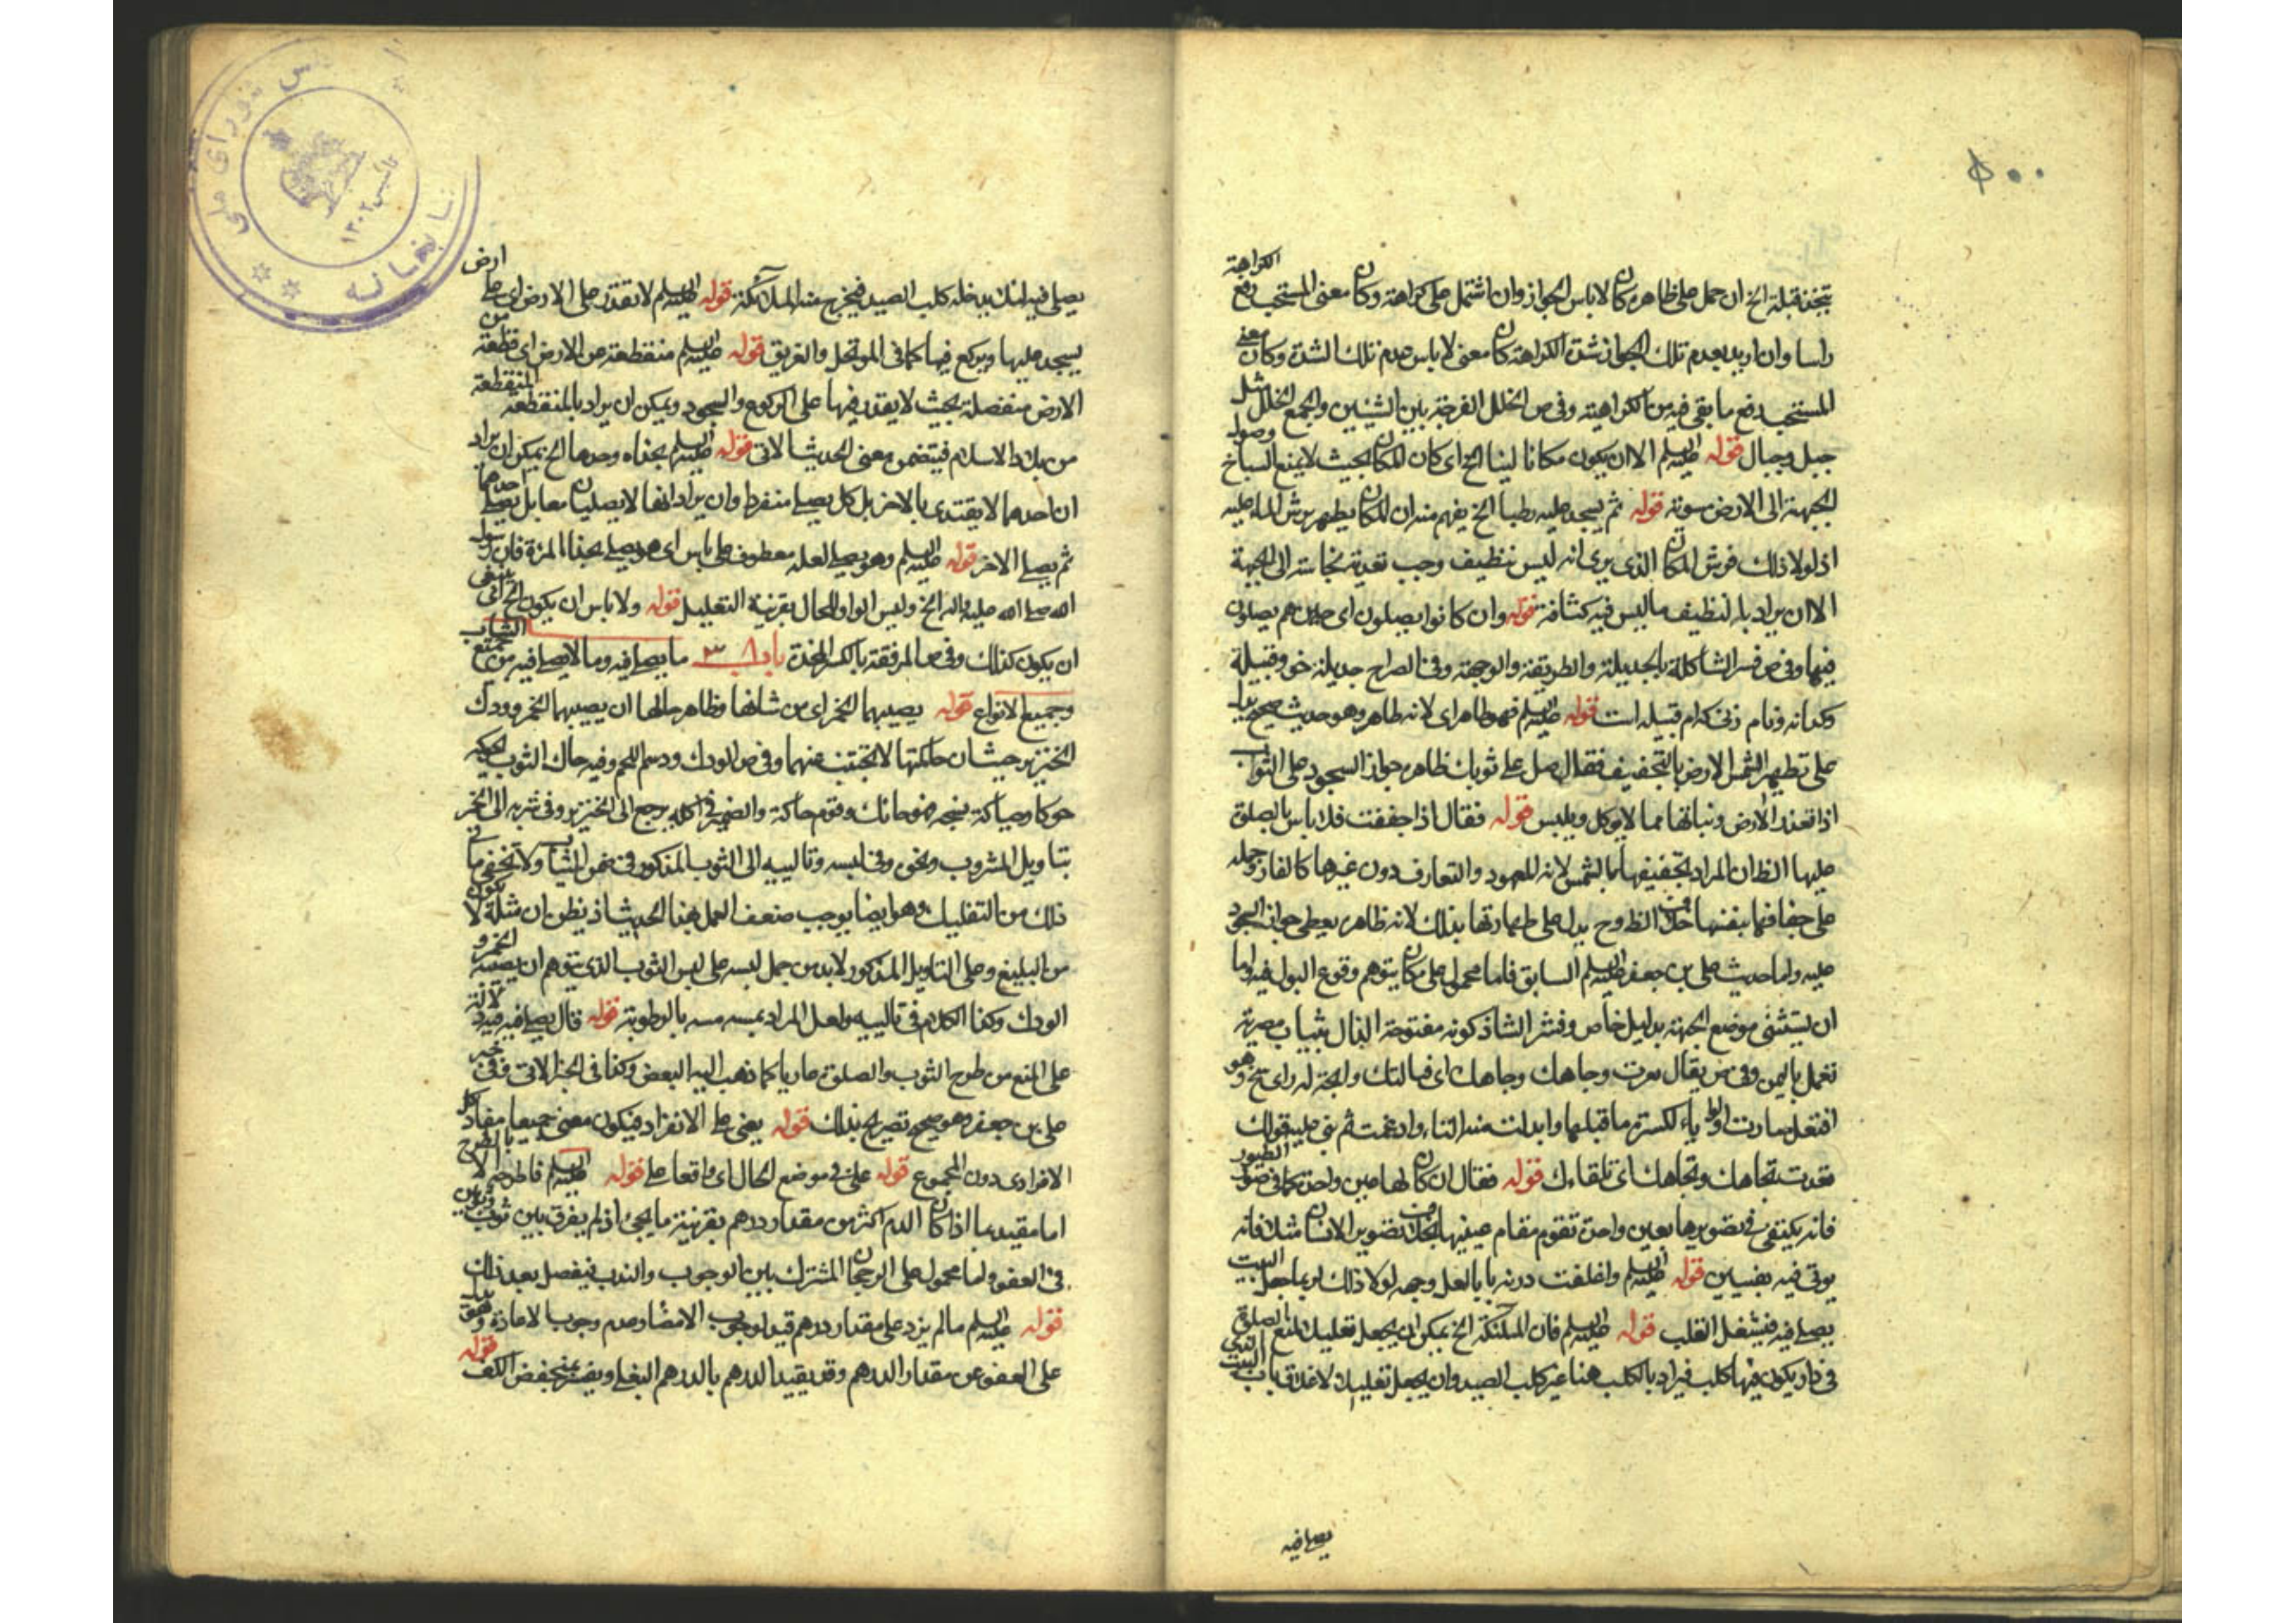 ٥٠٠
يتخذ قبلة الخ ان حمل على ظاهره كان لا باس الجواز وان اشتمل على كراهة وكان معنى المستحب رفع الكراهة
راسا وان اريد بعدم تلك الجواز شدة الكراهة كان معنى لا باس عدم تلك الشدة وكان معنى
المستحب دفع ما بقى فيه من الكراهة وفى ص الخلل الفرجة بين الشيئين والجمع الخلال مثل
جبل وجبال قوله عليه السلم الا ان يكون مكانا لينا الخ اى كان المكان بحيث لا يمنع السباخ وصول
الجبهة الى الارض مستوية قوله ثم يسجد عليه رطبا الخ يفهم منه ان المكان يطهر برش الماء عليه
اذ لولا ذلك فرش المكان الذى يرى انه ليس بنظيف وجب تعدية نجاسته الى الجبهة
الا ان يراد بالنظيف ما ليس فيه كثافة قوله وان كانوا يصلون اى حين هم يصلون
فيها وفى ص فسر الشاكلة بالجديلة والطريقة والوجهة وفى الصراح جديلة خو وقبيلة
وكرانه ونام زنى كدام قبيله است قوله عليه السلم فهو طاهر اى لانه طاهر وهو حديث صحيح يدل
على تطهير الشمس الارض بالتجفيف فقال صل على ثوبك ظاهره جواز السجود على الثواب
اذا تعذر الارض ونباتها مما لا يوكل ويلبس قوله فقال اذا جففت فلا باس بالصلوة
عليها الظ ان المراد بتجفيفها بالشمس لانه المعهود والتعارف دون غيرها كالنار وحمله
على جفافها بنفسها خلاف الظ وح يدل على طهارتها بذلك لانه ظاهره يعطى جواز السجود
عليه واما حديث على بن جعفر عليه السلم السابق فاما محمول على مكان يتوهم وقوع البول فيه واما
ان يستثنى موضع الجبهة بدليل خاص وفسر الشاذكونه مفتوحة الذال بثياب مضربة
تعمل باليمن وفى ص يقال بعرت وجاهك وجاهك اى قبالتك واتجه له راى سنح وهو
افتعل صارت الواو ياء لكسرة ما قبلها وابدلت منه التاء وادغمت ثم بنى عليه قولك
قعدت تجاهك وتجاهك اى تلقاءك قوله فقال ان كان لها عين واحدة كما فى صورة الطيور
فانه يكتفى فى تصويرها بعين واحدة تقوم مقام عينيها بخلاف تصوير الانسان مثلا فانه
يوتى فيه بعينين قوله عليه السلم واغلقت دونه بابا لعل وجهه لولا ذلك لربما جعل البيت
يصلى فيه فيشغل القلب قوله عليه السلم فان الملئكة الخ يمكن ان يجعل تعليلا لمنع الصلوة
فى دار يكون فيها كلب فيراد بالكلب هنا غير كلب الصيد وان يجعل تعليلا لاغلاق باب البيت التى
يصلى فيه
يصلى فيه لئلا يدخله كلب الصيد فيخرج منه الملائكة قوله عليه السلم لا تقدر على الارض اى على ارض
يسجد عليها ويركع فيها كما فى الموتحل والغريق قوله عليه السلم منقطعة من الارض اى قطعة من
الارض منفصلة بحيث لا يقدر فيها على الركوع والسجود ويمكن ان يراد بالمنقطعة المنقطعة
من بلاد الاسلام فيتضمن معنى الحديث الاتى قوله عليه السلم بحذاه وحدها الخ يمكن ان يراد
ان احدهما لا يقتدى بالاخر بل كل يصلى منفردا وان يراد انهما لا يصليان معا بل يصلى احدهما
ثم يصلى الاخر قوله عليه السلم وهو يصلى لعله معطوف على باس اى هو يصلى بحذاء المرءة فان رسول
الله صلى الله عليه واله الخ وليس الواو للحال بقرينة التعليل قوله ولا باس ان يكون الخ اى ينبغى
ان يكون كذلك وفى ص المرفقة بالكسر المخدة باب ٣٨ ما يصلى فيه وما لا يصلى فيه من الثياب
وجميع الانواع قوله يصيبها الخمر اى من شانها وظاهر حالها ان يصيبها الخمر وودك
الخنزير حيث ان حائكها لا يجتنب عنهما وفى ص الودك ودسم اللحم وفيه حاك الثوب يحوكه
حوكا وحياكة نسجه فهو حائك وقوم حاكة والضمير فى اكله يرجع الى الخنزير وفى شربه الى الخمر
بتاويل المشروب ونحوه وفى لبسه وتاليبه الى الثوب المذكور فى ضمن الثياب ولا يخفى ما فى
ذلك من التفليك وهو ايضا يوجب ضعف العمل بهذا الحديث اذ يظن ان مثله لا يكون
من البليغ وعلى التاويل المذكور لا بد من حمل لبسه على لبس الثوب الذى يتوهم ان يصيبه الخمر و
الودك وكذا الكلام فى تاليبه ولعل المراد بمسه مسه بالرطوبة قوله قال يصلى فيه فيه دلالة
على المنع من طرح الثوب والصلوة عاريا كما ذهب اليه البعض وكذا فى الخبر الاتى وفى خبر
على بن جعفر وهو صحيح تصريح بذلك قوله يعنى على الانفراد فيكون معنى جميعا مفاد كل
الافرادى دون المجموع قوله على فى موضع الحال اى واقعا على قوله عليه السلم فاطرحه الا بالطرح
اما مقيد بما اذا كان الدم اكثر من مقدار درهم بقرينة ما يجئ اذ لم يفرق بين ثوب وثوبين
فى العفو واما محمول على الرجحان المشترك بين الوجوب والندب فيفصل بعد ذلك
قوله عليه السلم ما لم يزد على مقدار درهم قيد لوجوب الامضاء وعدم وجوب الاعادة وهو يدل
على العفو عن مقدار الدرهم وقد يقيد الدرهم بالدرهم البغلى ويفسر بمنخفض الكف قوله